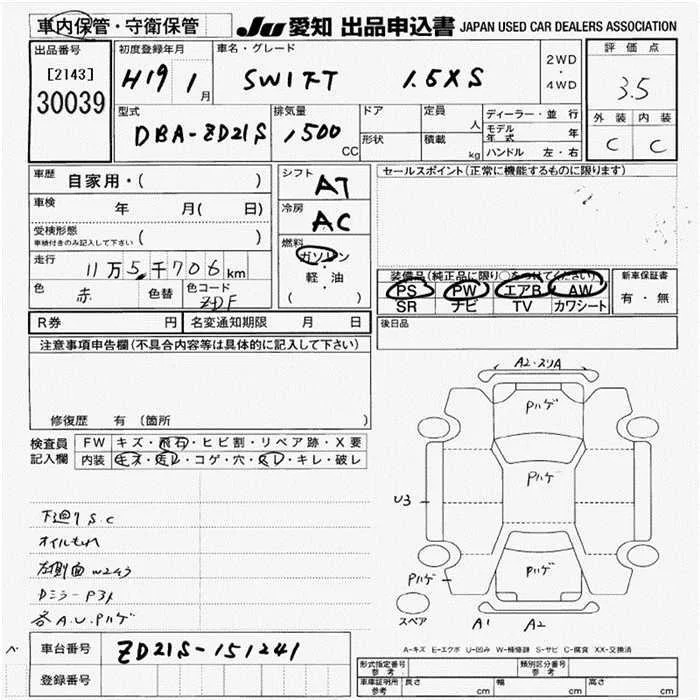 車内保管・守衛保管
JU 愛知 出品申込書 JAPAN USED CAR DEALERS ASSOCIATION
出品番号
[2143]
30039
初度登録年月
H19 1 月
車名・グレード
SWIFT 1.5XS
2WD
・
4WD
評価点
3.5
外装 内装
C C
型式
DBA-ZD21S
排気量
1500 CC
ドア
形状
定員 人
積載 kg
ディーラー・並行
モデル年式 年
ハンドル 左・右
車歴 自家用・( )
車検 年 月( 日)
受検形態
車検付きのみ記入して下さい ( )
走行 11万5千706km
色 赤 色替 色コード ZDF
シフト AT
冷房 AC
燃料
ガソリン
・
軽・油
( )
セールスポイント(正常に機能するものに限ります)
装備品(純正品に限り○をつけてください)
PS PW エアB AW
SR ナビ TV カワシート
新車保証書
有・無
R券 円 名変通知期限 月 日
後日品
注意事項申告欄(不具合内容等は具体的に記入して下さい)
修復歴 有 (箇所 )
検査員記入欄
FW キズ・飛石・ヒビ割・リペア跡・X要
内装 キズ・汚レ・コゲ・穴・スレ・キレ・破レ
下廻りS.C
オイルもれ
左側面W2,3
Dミラー P3X
各A.U.Pハゲ
A2・スリA
Pハゲ
Pハゲ
U3
Pハゲ
Pハゲ
スペア
A1 A2
A-キズ E-エクボ U-凹み W-補修跡 S-サビ C-腐食 XX-交換済
車台番号 ZD21S-151241
登録番号
形式指定番号 参考
類別区分番号 参考
車庫証明用 参考 長さ cm 幅 cm 高さ cm